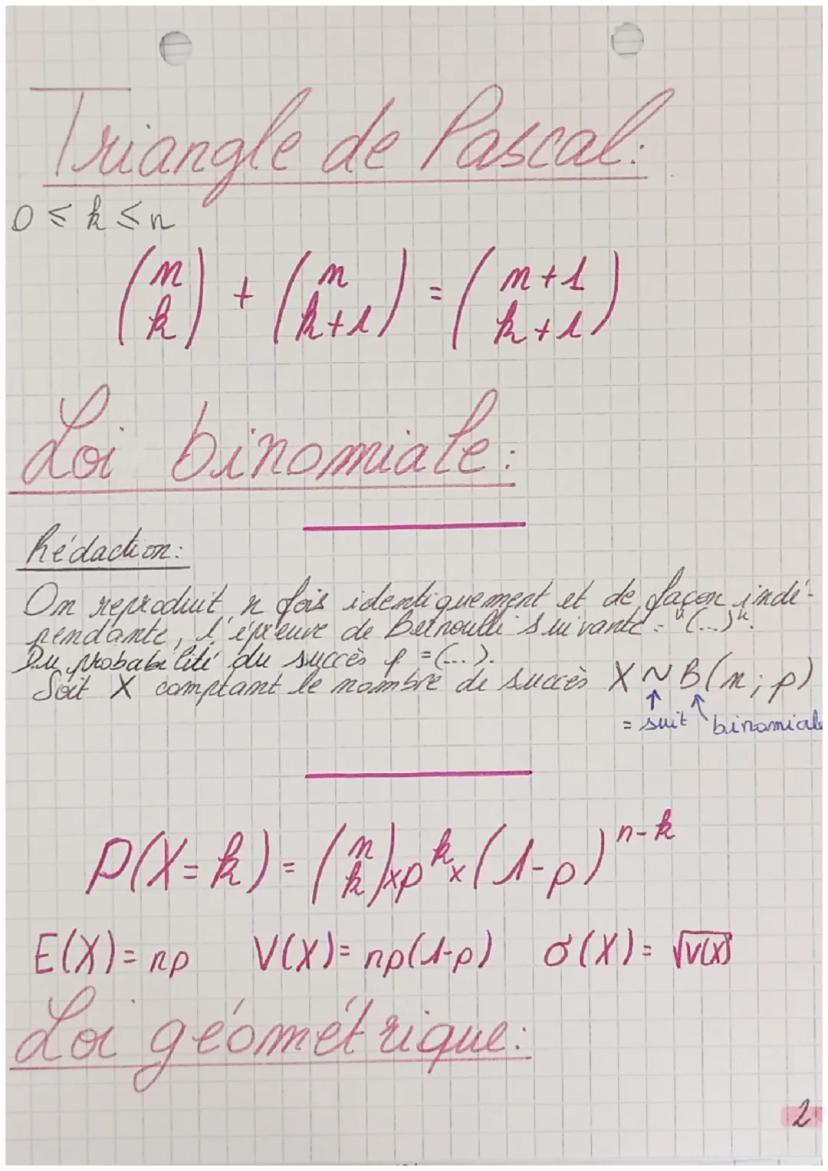 Triangle de Pascal:
0 ≤ k ≤ n
(n k) + (n k+1) = (n+1 k+1)
Loi binomiale:
Rédaction:
On reproduit n fois identiquement et de façon indé-
pendante, l'épreuve de Bernoulli suivante: "(...)".
Du probabilité du succès p = (...).
Soit X comptant le nombre de succès X ~ B(n; p)
= suit binomiale
P(X=k) = (n k) × p^k × (1-p)^n-k
E(X) = np V(X) = np(1-p) σ(X) = √V(X)
Loi géométrique:
2